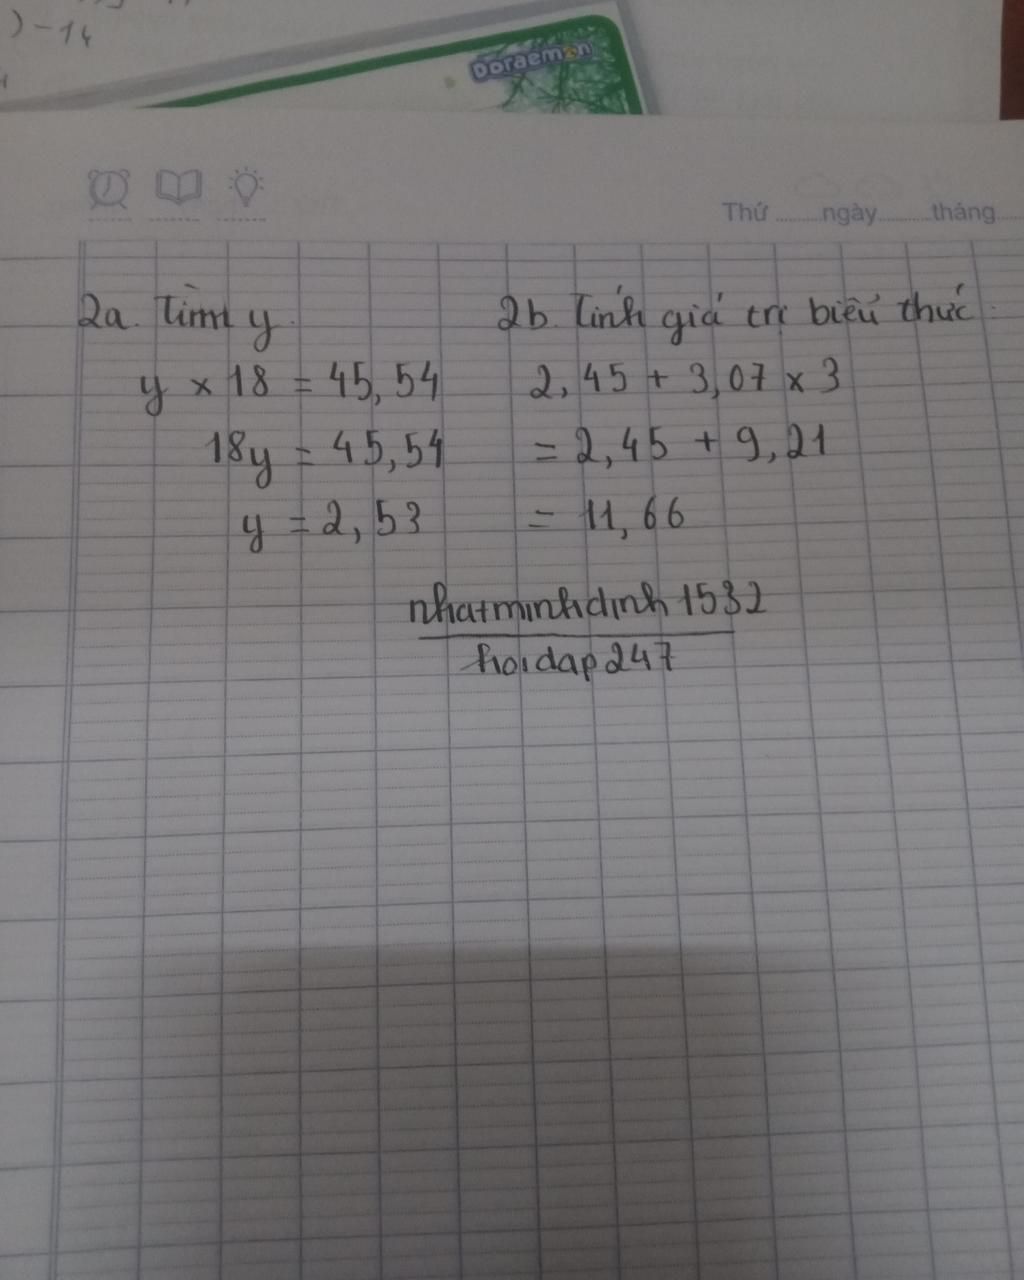 )-14
Doraemon
Thứ.........ngày.........tháng
2a. Tìm y.
y × 18 = 45,54
18y = 45,54
y = 2,53
2b. Tính giá trị biểu thức.
2,45 + 3,07 × 3
= 2,45 + 9,21
= 11,66
nhatminhdinh1532
hoidap247